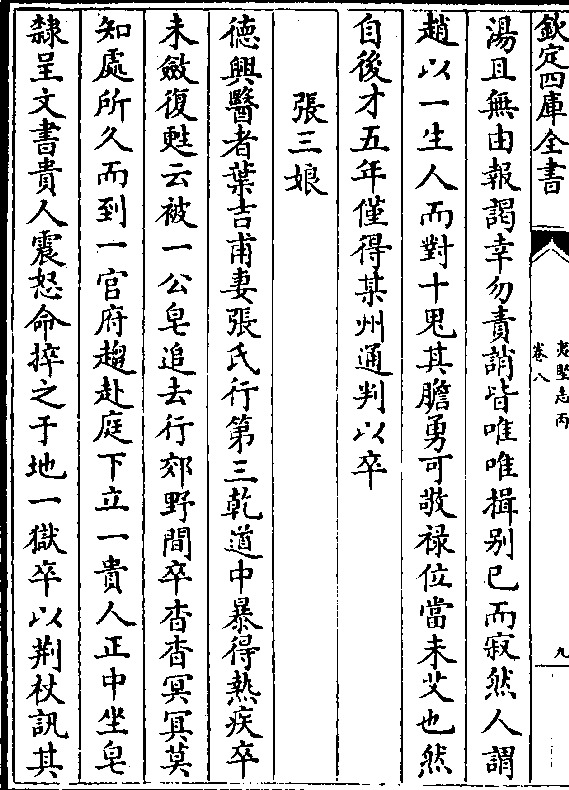 欽定四庫全書
夷堅志丙
卷八
九
湯且無由報謁幸勿責誚皆唯唯揖别已而寂然人謂
趙以一生人而對十鬼其膽勇可敬禄位當未艾也然
自後才五年僅得某州通判以卒
張三娘
德興醫者葉吉甫妻張氏行第三乾道中暴得熱疾卒
未斂復甦云被一公皂追去行郊野間卒杳杳冥冥莫
知處所久而到一官府趨赴庭下立一貴人正中坐皂
隸呈文書貴人震怒命捽之于地一獄卒以荆杖訊其